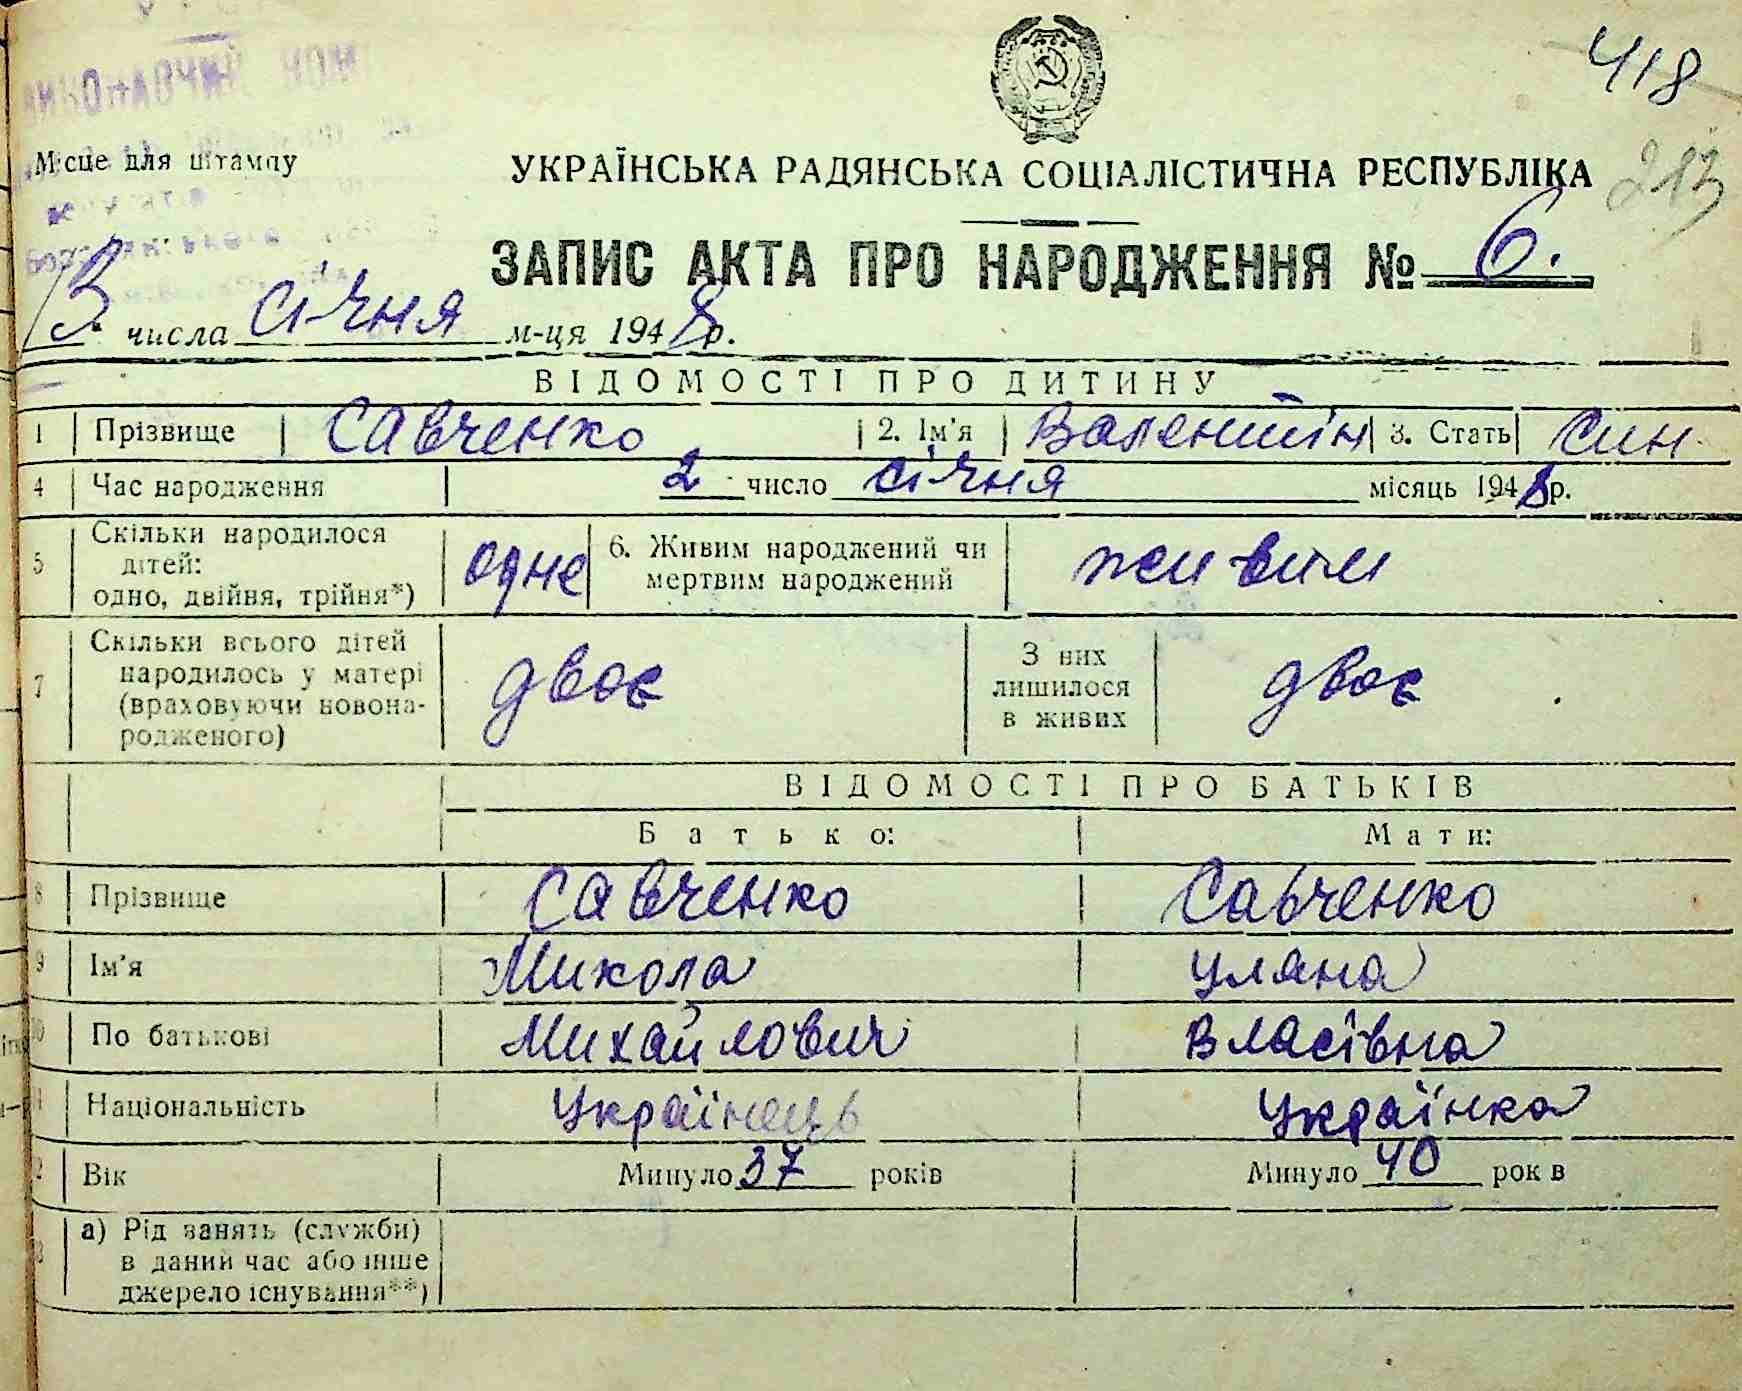 418
ВИКОНАВЧИЙ КОМ
Місце для штампу
УКРАЇНСЬКА РАДЯНСЬКА СОЦІАЛІСТИЧНА РЕСПУБЛІКА
213
ЗАПИС АКТА ПРО НАРОДЖЕННЯ № 6.
13. числа січня м-ця 1948 р.
ВІДОМОСТІ ПРО ДИТИНУ
1 Прізвище Савченко 2. Ім'я Валентін 3. Стать син
4 Час народження 2 число січня місяць 1948 р.
5 Скільки народилося дітей: одно, двійня, трійня*) одне 6. Живим народжений чи мертвим народжений живим
7 Скільки всього дітей народилось у матері (враховуючи новонародженого) двоє З них лишилося в живих двоє
ВІДОМОСТІ ПРО БАТЬКІВ
Батько: Мати:
8 Прізвище Савченко Савченко
9 Ім'я Микола Уляна
10 По батькові Михайлович Власівна
Національність Українець Українка
2 Вік Минуло 37 років Минуло 40 рок в
3 а) Рід занять (служби) в даний час або інше джерело існування**)